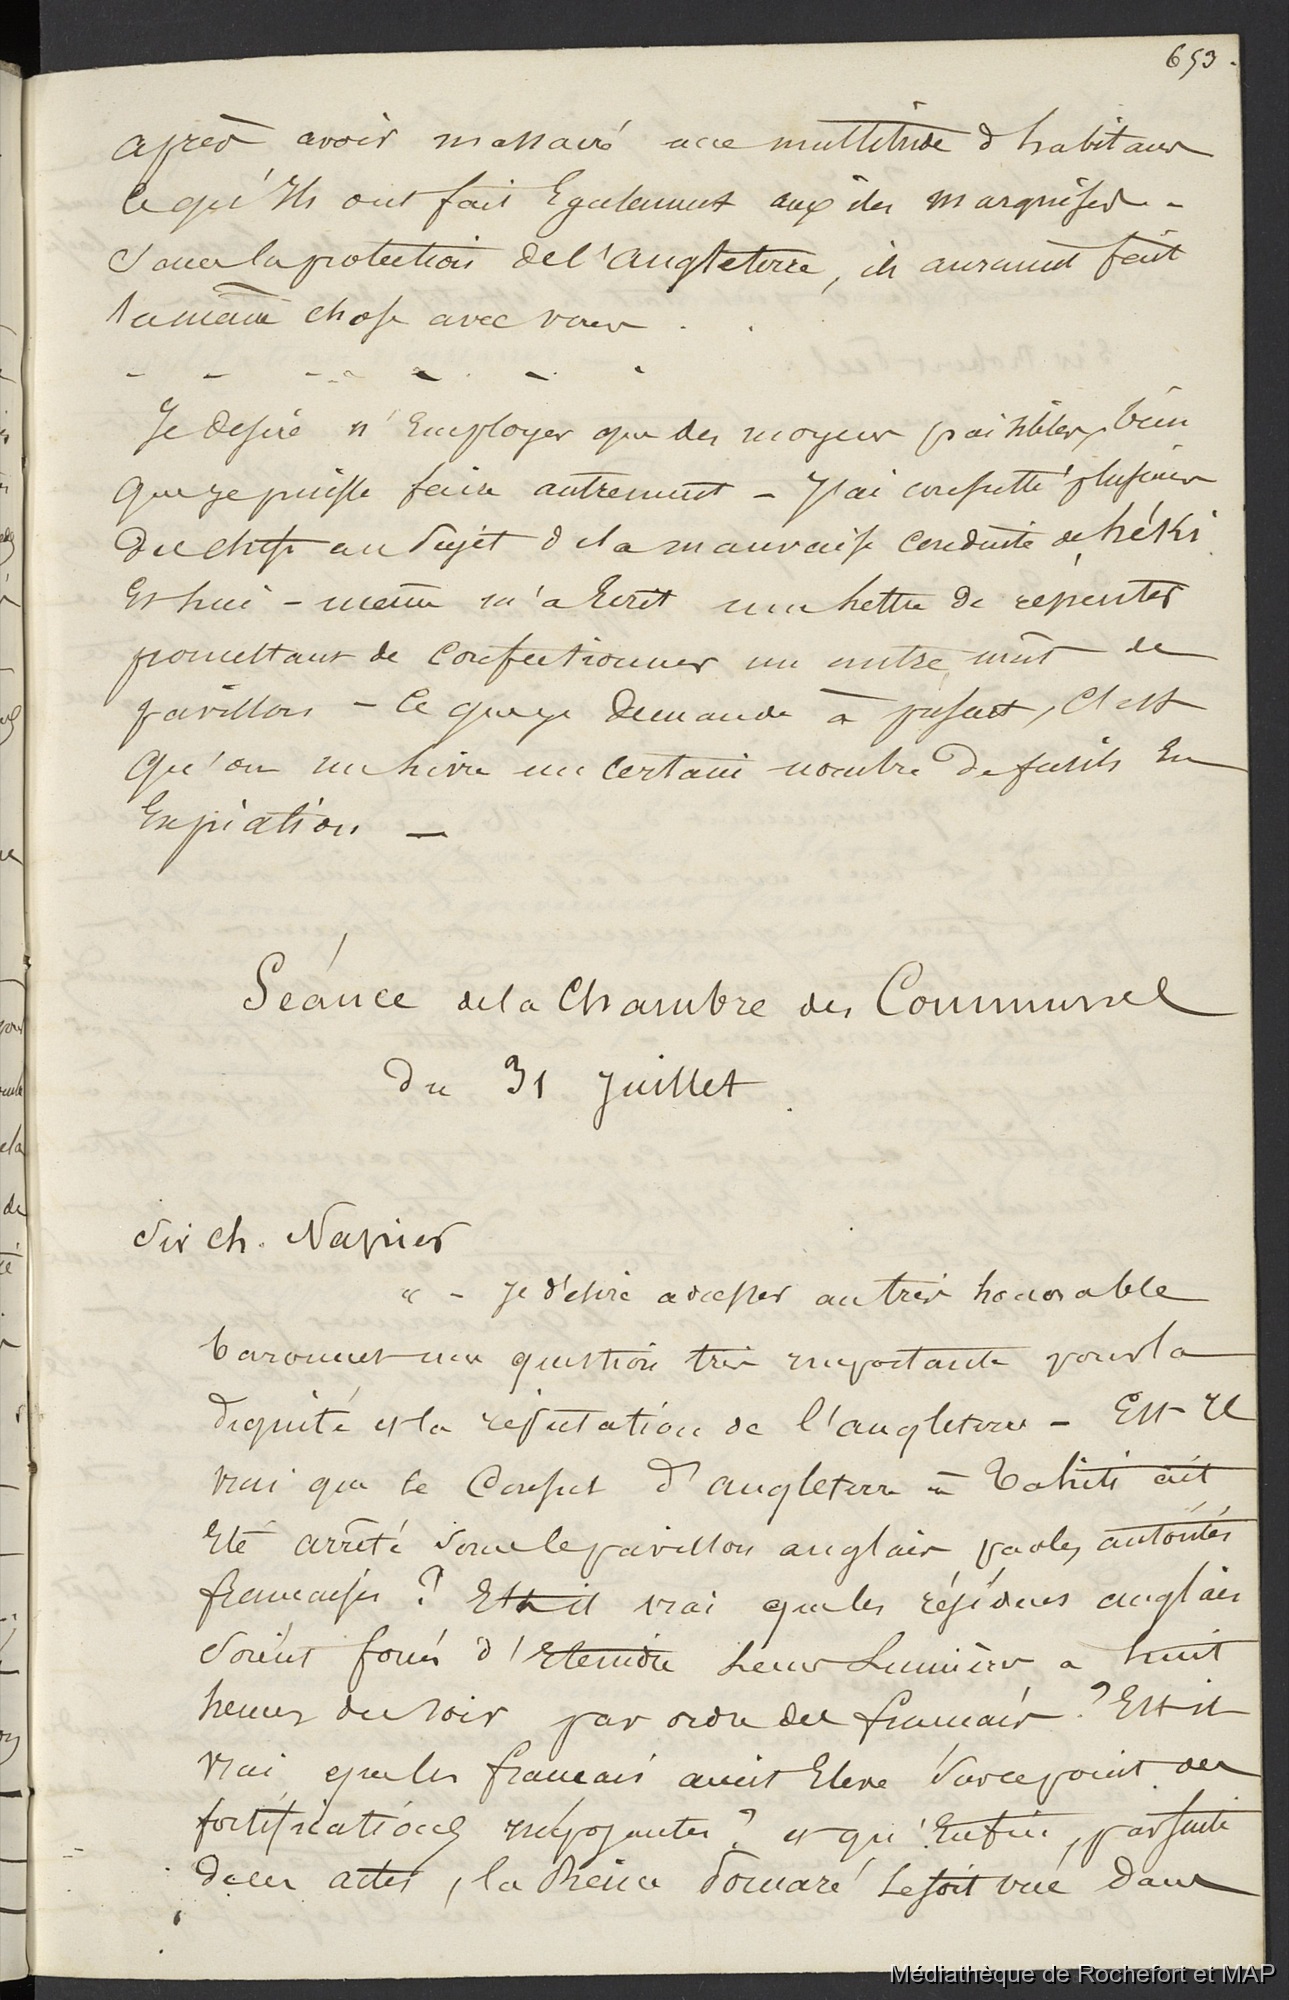 653.
après avoir massacré une multitude d'habitans
ce qu'ils ont fait Egalement aux iles marquises -
Sans la protection de l'angleterre, ils auraient fait
la même chose avec vous . .
Je desire n'Employer que des moyens paisibles, bien
que je puisse faire autrement - J'ai consulté plusieurs
des chefs au sujet de la mauvaise conduite de héki
Et lui - même m'a Ecrit une lettre de repentir
promettant de confectionner un autre mât de
pavillon - Ce que je demande à présent, C'est
qu'on me livre un certain nombre de fusils En
Expiation -
Séance de la Chambre des Communes
du 31 Juillet.
Sir Ch. Napier
" - Je désire adresser au très honorable
baronnet une question très importante pour la
dignité et la réputation de l'angleterre - Est Il
vrai que le Consul d'angleterre à Tahiti ait
Eté arrêté sous le pavillon anglais par les autorités
françaises ? Est il vrai que les résidens anglais
Soient forcés d'Eteindre leurs lumières à huit
heures du soir par ordre des français ? Est il
vrai que les français aient Elevé sur ce point des
fortifications imposantes ? et qu'Enfin, par suite
de ces actes, la Reine Pomaré se soit vue dans
Médiathèque de Rochefort et MAP